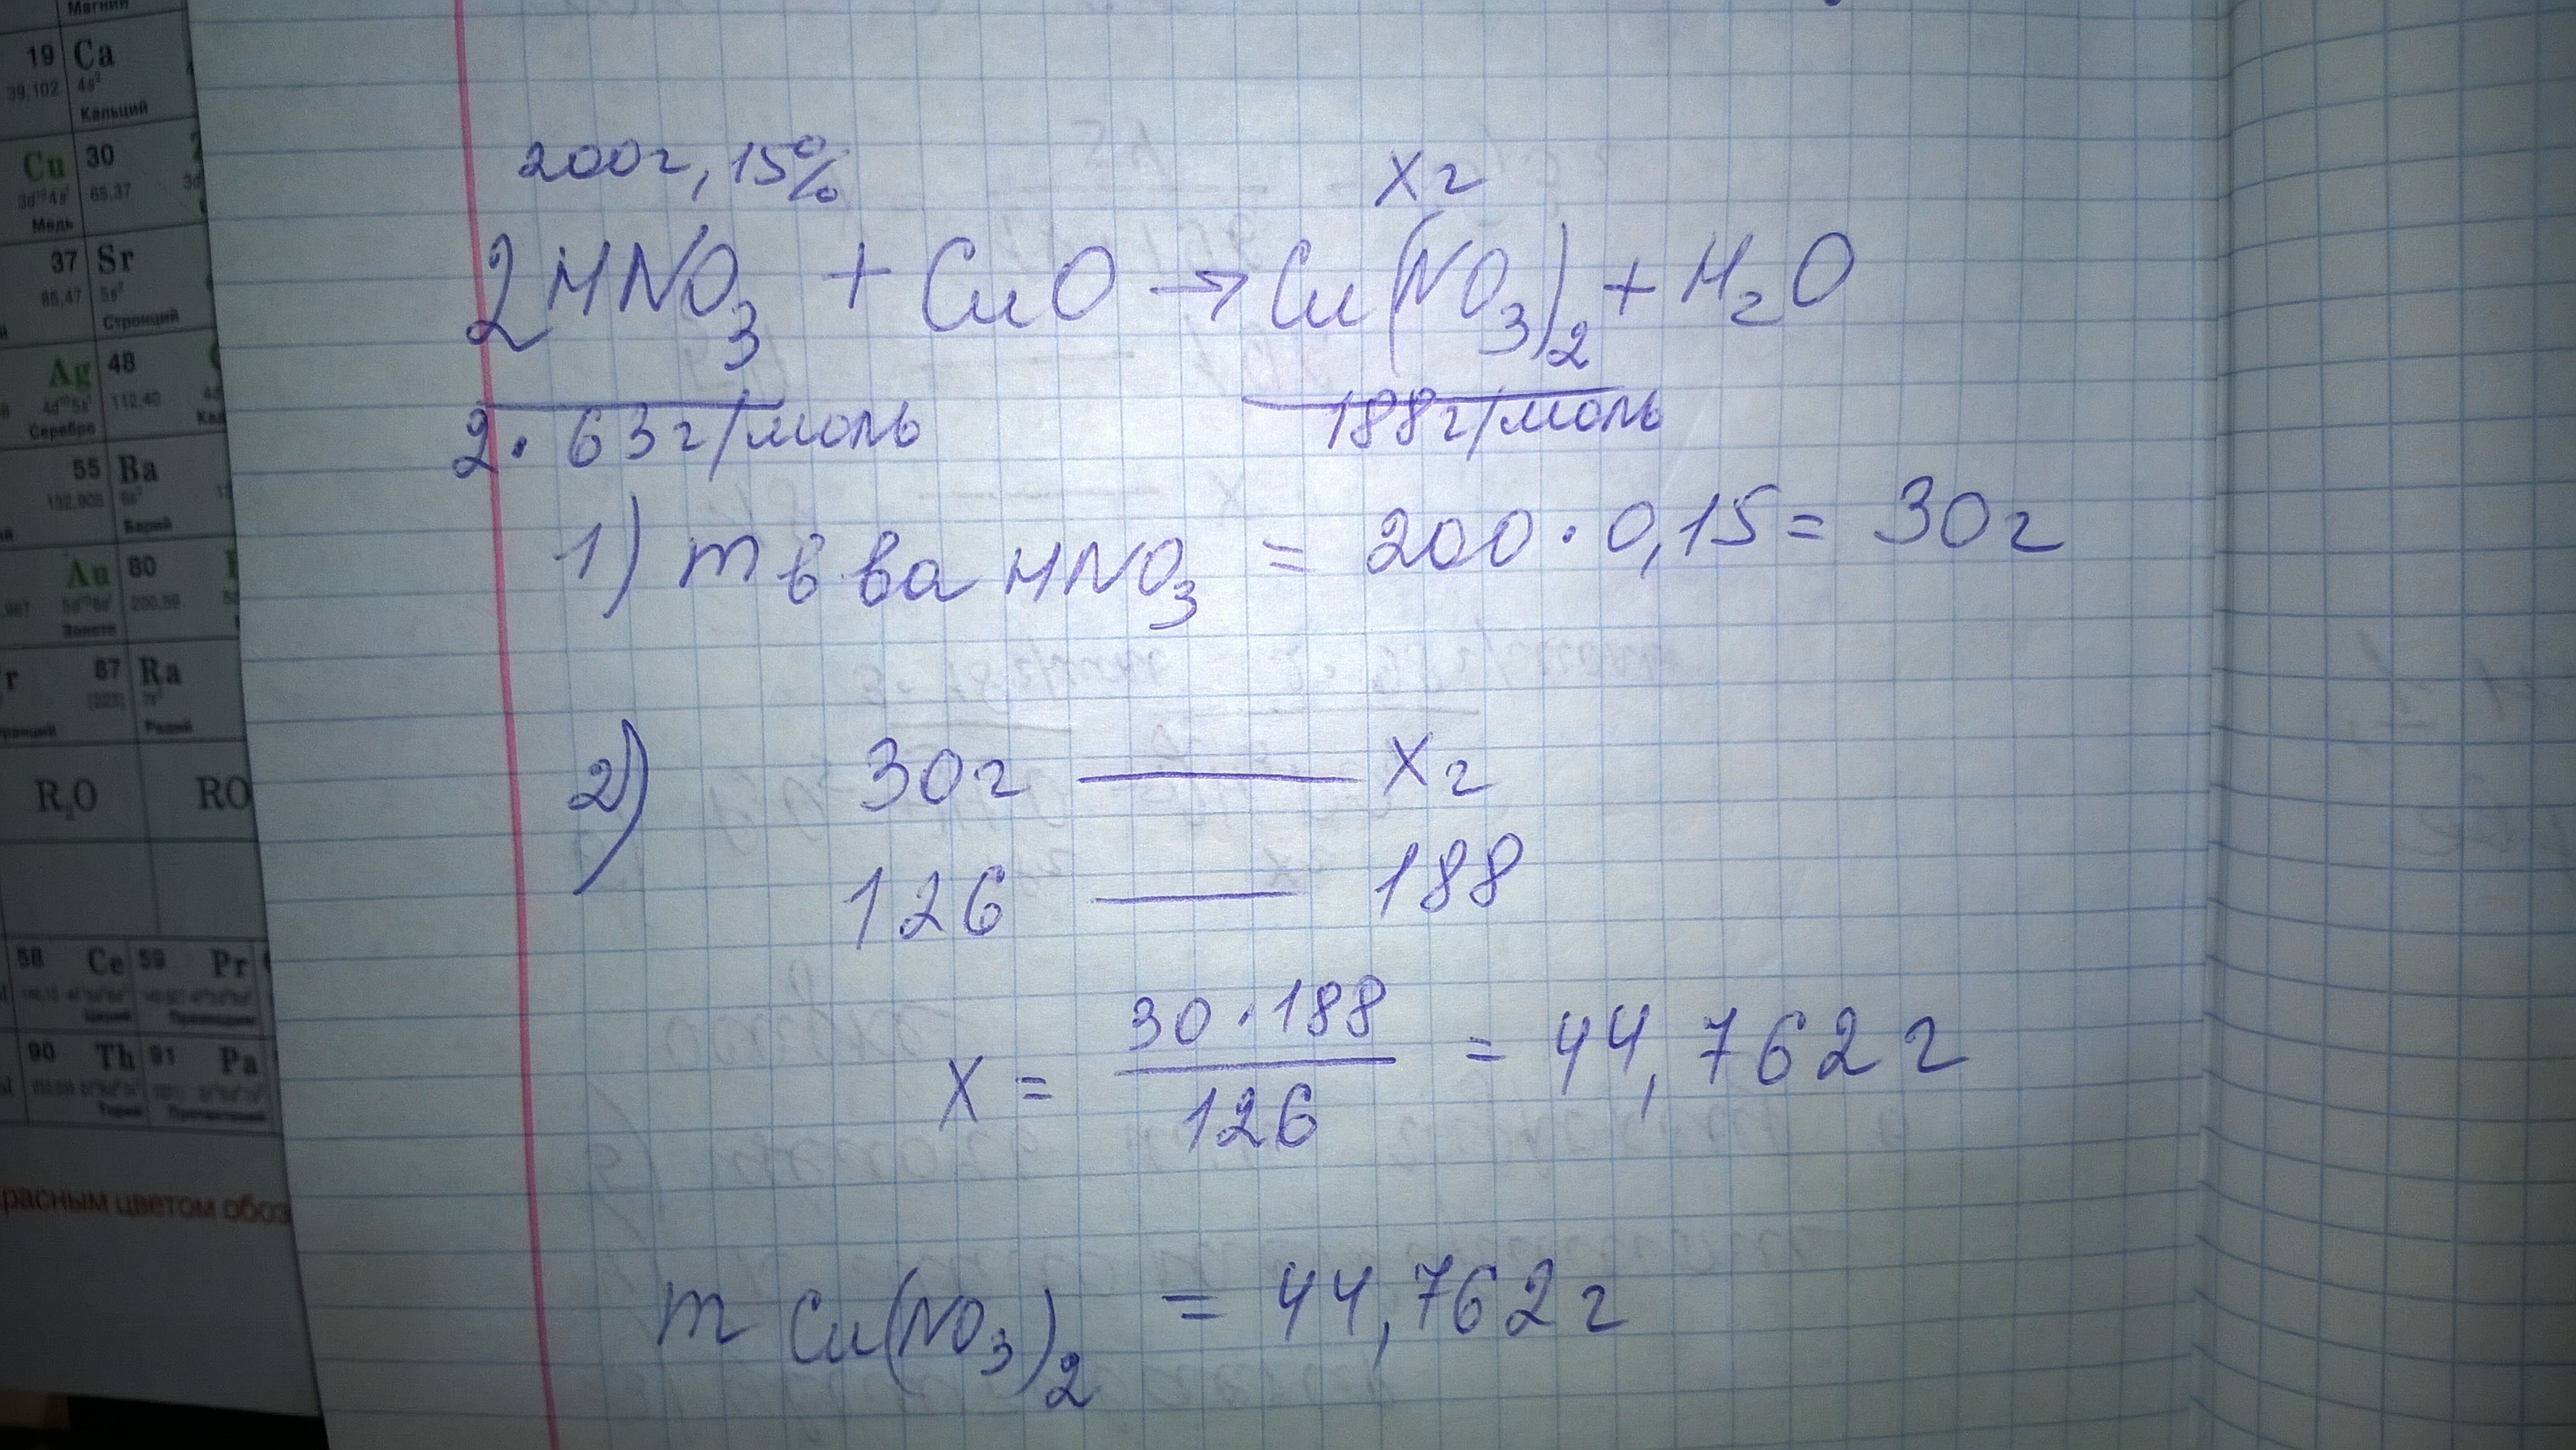 Магний
19 Ca
39,102 4s²
Кальций
Cu 30
3d¹⁰4s¹ 65,37
Медь
37 Sr
85,47 5s²
Стронций
Ag 48
4d¹⁰5s¹ 112,40
Серебро
55 Ba
132,905 6s²
Барий
Au 80
5d¹⁰6s¹ 200,59
Золото
87 Ra
[223] 7s²
Радий
R₂O RO
58 Ce 59 Pr
Церий
90 Th 91 Pa
Торий
расным цветом обоз
200г, 15% Xг
2HNO₃ + CuO → Cu(NO₃)₂ + H₂O
2 · 63г/моль 188г/моль
1) m в ва HNO₃ = 200 · 0,15 = 30г
2) 30г — Xг
126 — 188
X = 30 · 188 / 126 = 44,762г
m Cu(NO₃)₂ = 44,762г